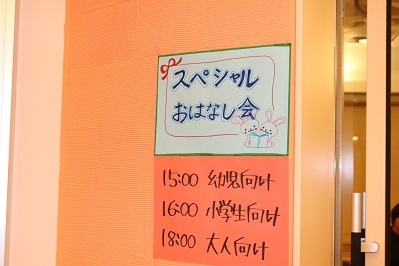 スペシャル
おはなし会
15:00 幼児向け
16:00 小学生向け
18:00 大人向け